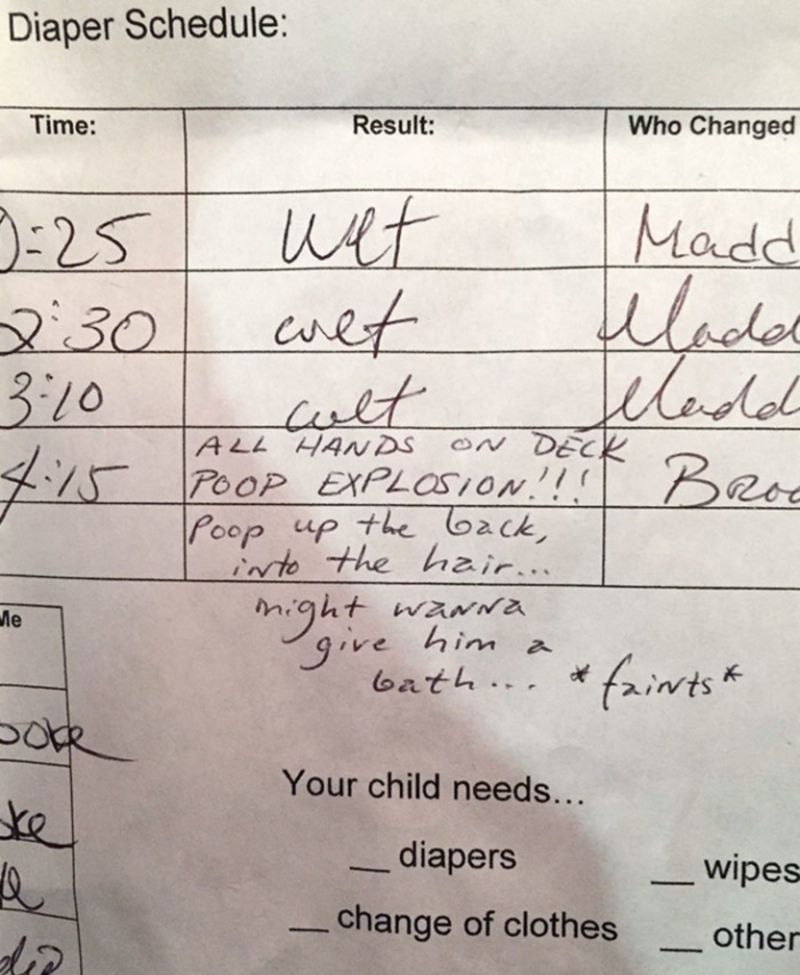 Diaper Schedule:
Time: Result: Who Changed
:25 wet Madd
2:30 wet Madd
3:10 wet Madd
4:15 ALL HANDS ON DECK
POOP EXPLOSION!!! Broo
Poop up the back,
into the hair...
might wanna
give him a
bath... *faints*
Me
ooke
ke
Your child needs...
__ diapers __ wipes
__ change of clothes __ other